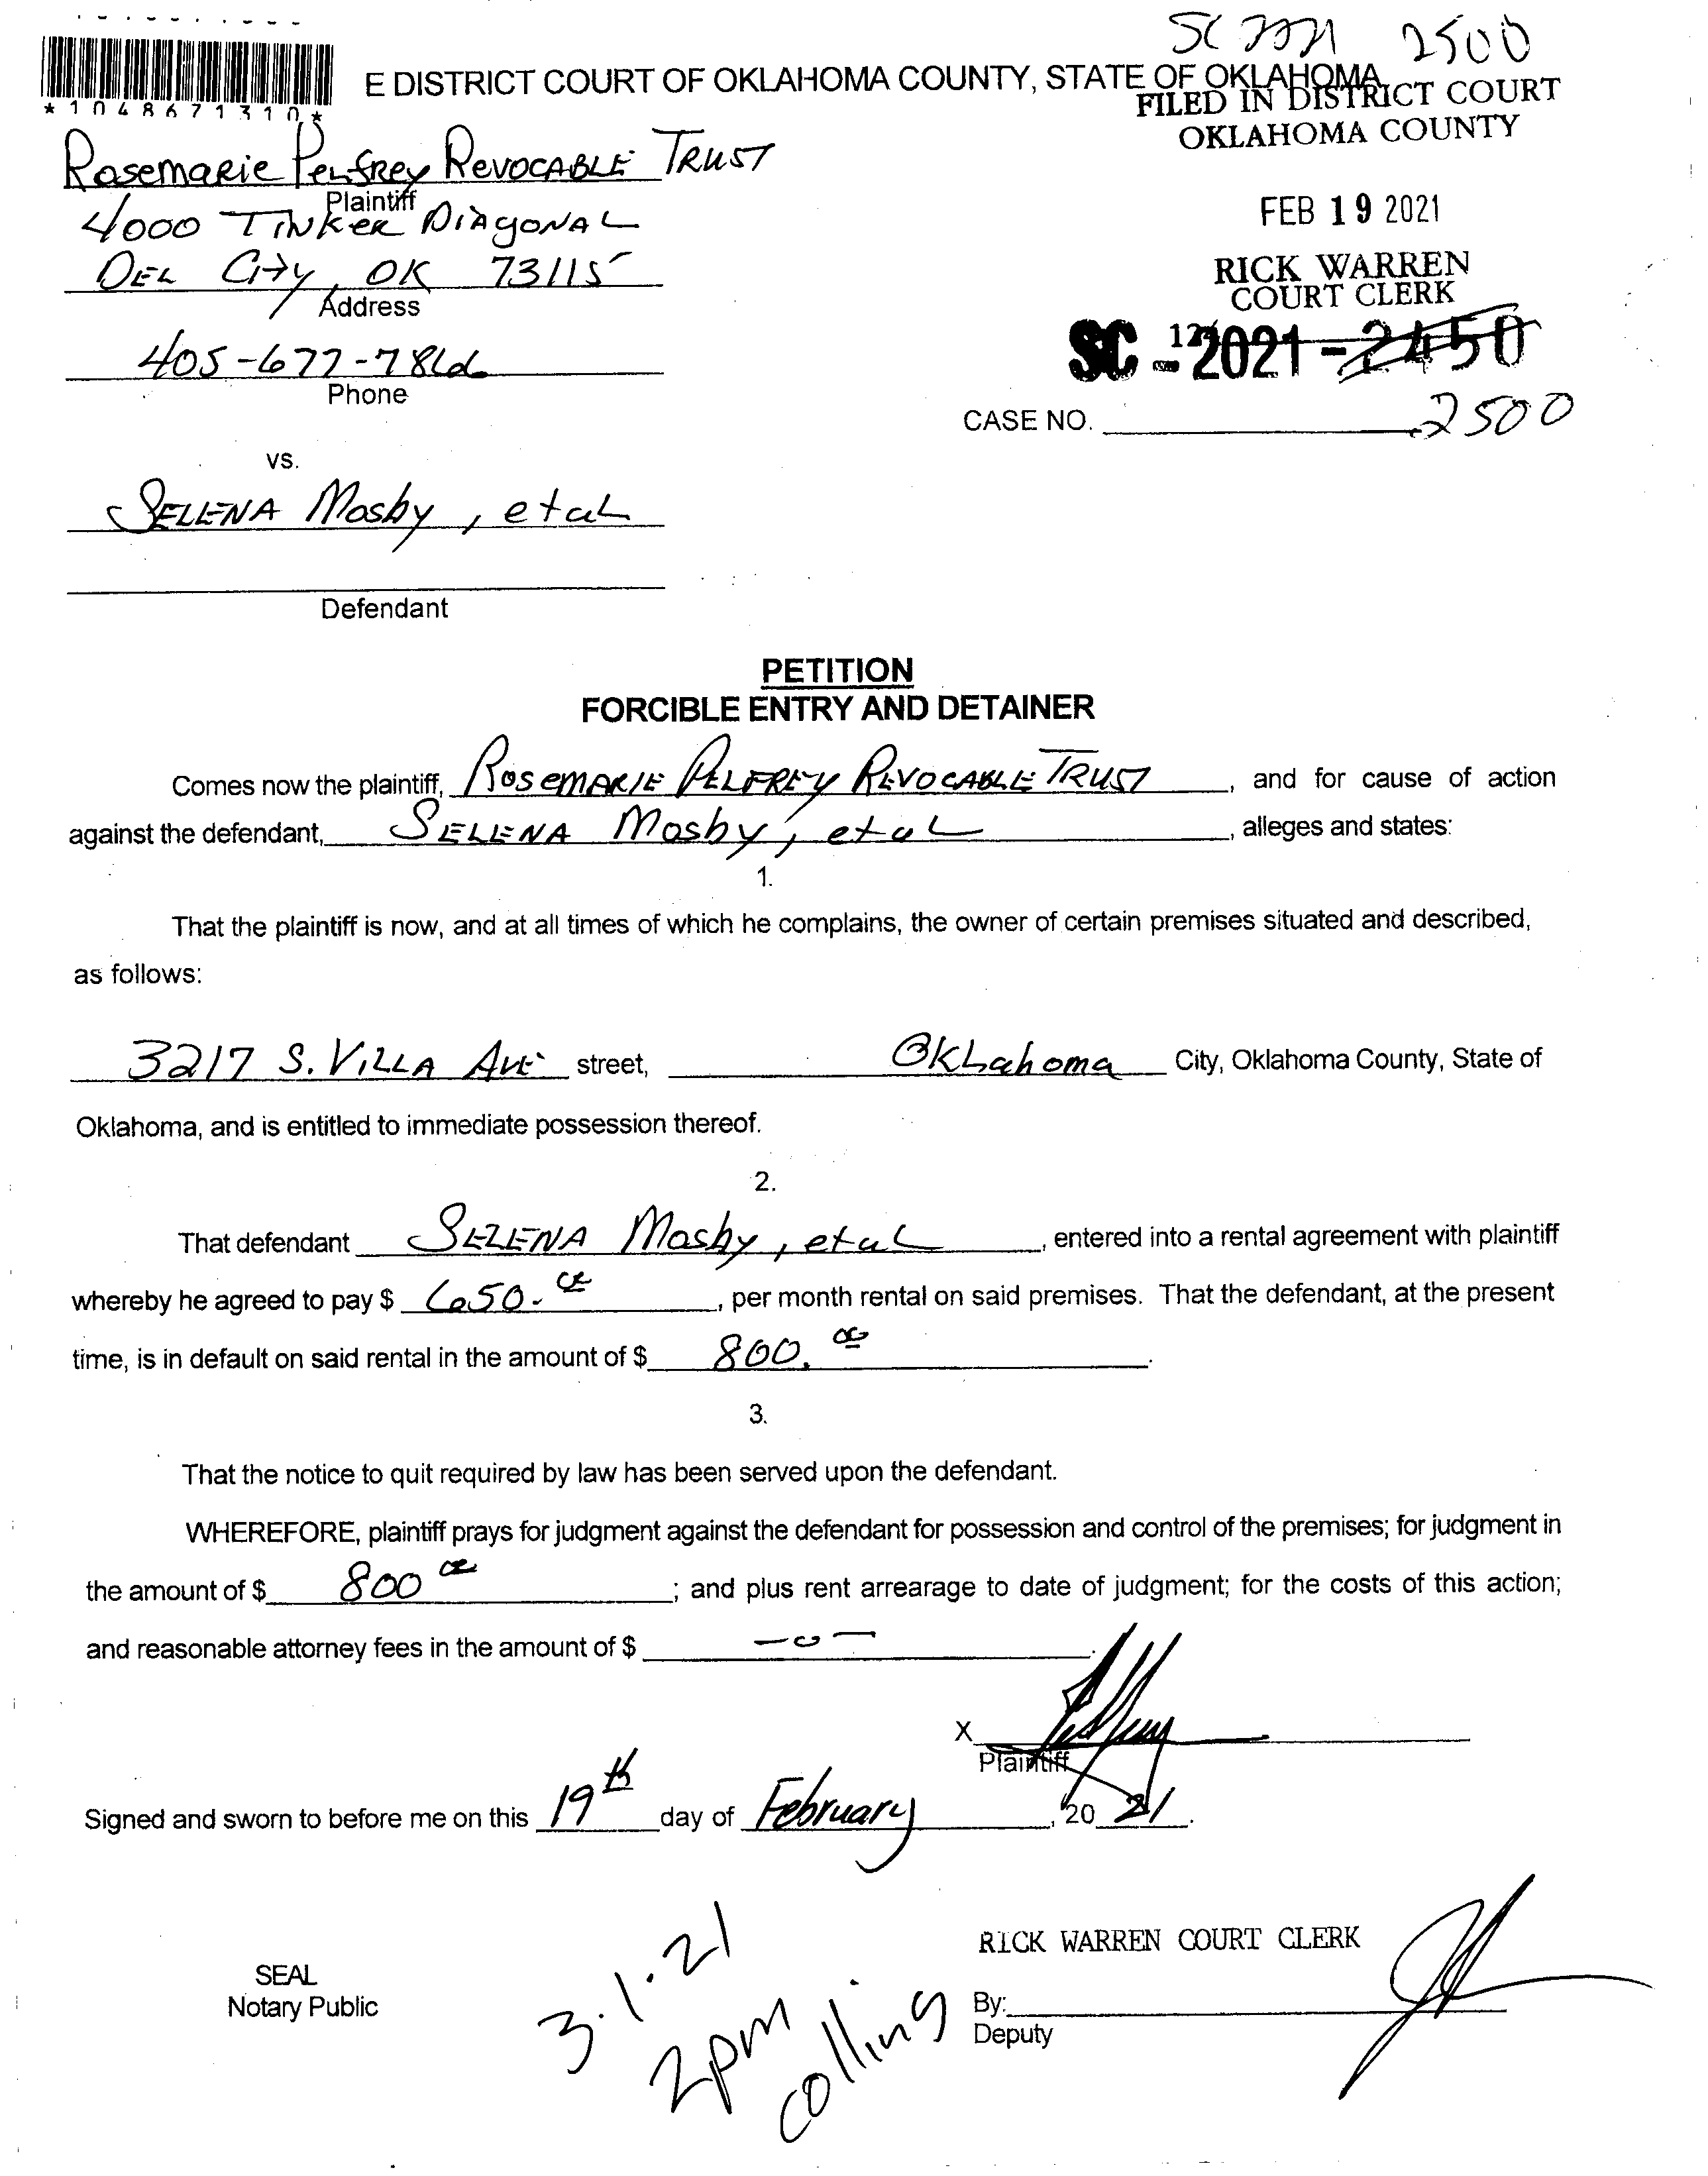 SC 2021 2500
E DISTRICT COURT OF OKLAHOMA COUNTY, STATE OF OKLAHOMA
*1048671310*
FILED IN DISTRICT COURT
OKLAHOMA COUNTY
Rosemarie Pelfrey Revocable Trust
Plaintiff
4000 Tinker Diagonal
Del City, OK 73115
Address
FEB 19 2021
RICK WARREN
COURT CLERK
SC - 2021 - 2450
405-677-7866
Phone
CASE NO. 2500
vs.
Selena Mosby, et al
Defendant
PETITION
FORCIBLE ENTRY AND DETAINER
Comes now the plaintiff, Rosemarie Pelfrey Revocable Trust, and for cause of action
against the defendant, Selena Mosby, et al, alleges and states:
1.
That the plaintiff is now, and at all times of which he complains, the owner of certain premises situated and described,
as follows:
3217 S. Villa Ave street, Oklahoma City, Oklahoma County, State of
Oklahoma, and is entitled to immediate possession thereof.
2.
That defendant Selena Mosby, et al, entered into a rental agreement with plaintiff
whereby he agreed to pay $ 650.00, per month rental on said premises. That the defendant, at the present
time, is in default on said rental in the amount of $ 800.00.
3.
That the notice to quit required by law has been served upon the defendant.
WHEREFORE, plaintiff prays for judgment against the defendant for possession and control of the premises; for judgment in
the amount of $ 800 00; and plus rent arrearage to date of judgment; for the costs of this action;
and reasonable attorney fees in the amount of $ -0-.
X
Plaintiff
Signed and sworn to before me on this 19th day of February, 20 21.
RICK WARREN COURT CLERK
SEAL
Notary Public
By:
Deputy
3.1.21
2pm
collins